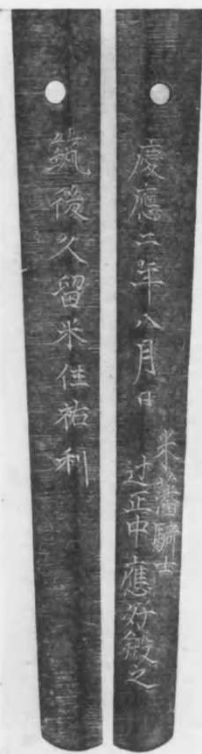 慶應二年八月日
米藩騎士
辻正中應好鍛之
筑後久留米住祐利